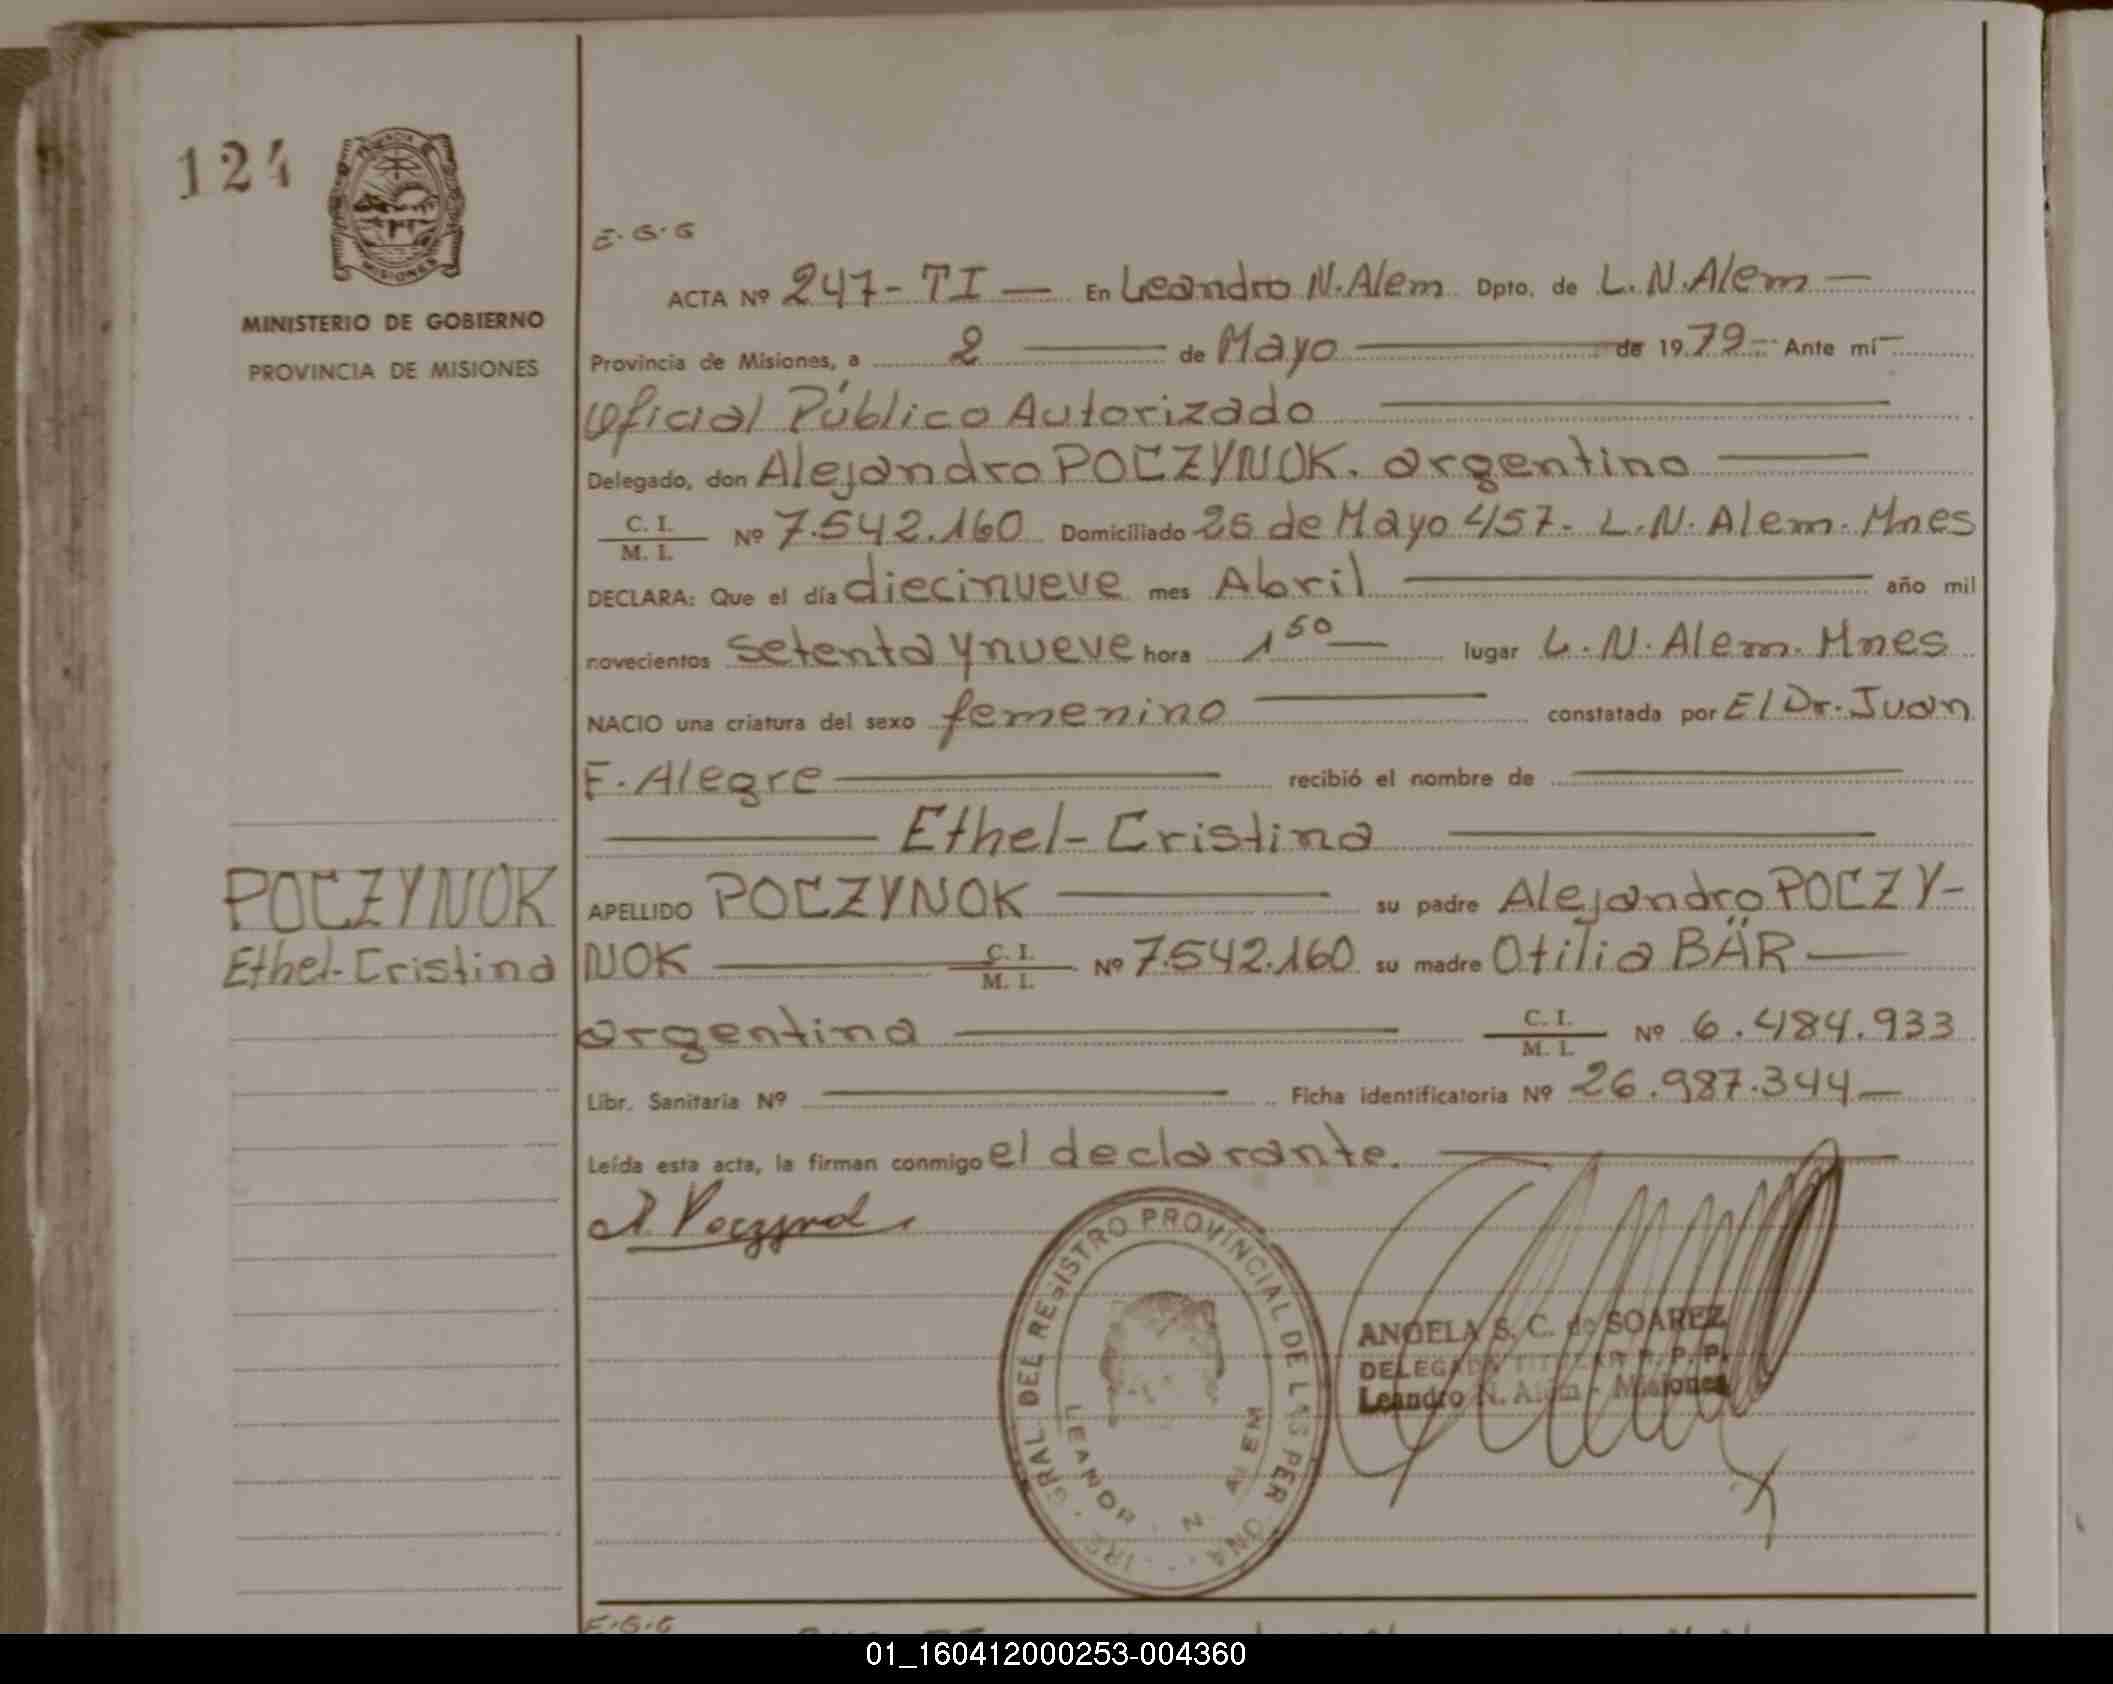 124
MISIONES
MINISTERIO DE GOBIERNO
PROVINCIA DE MISIONES
E.G.G
ACTA Nº 247-TI — En Leandro N. Alem Dpto. de L.N.Alem —
Provincia de Misiones, a 2 — de Mayo — de 1979 - Ante mí —
Oficial Público Autorizado —
Delegado, don Alejandro POCZYNOK. argentino —
C. I.
M. I. Nº 7.542.160 Domiciliado 25 de Mayo 457- L.N. Alem. Mnes
DECLARA: Que el día diecinueve mes Abril — año mil
novecientos setenta y nueve hora 1 50 — lugar L.N. Alem. Mnes
NACIO una criatura del sexo femenino — constatada por El Dr. Juan
F. Alegre — recibió el nombre de —
— Ethel-Cristina —
POCZYNOK
Ethel-Cristina
APELLIDO POCZYNOK — su padre Alejandro POCZY-
NOK — C. I.
M. I. Nº 7.542.160 su madre Otilia BÄR —
argentina — C. I.
M. I. Nº 6.484.933
Libr. Sanitaria Nº — Ficha identificatoria Nº 26.987.344 —
Leída esta acta, la firman conmigo el declarante. —
GRAL DEL REGISTRO PROVINCIAL DE LAS PER
LEANDR N. ALEM
ANGELA S. C. de SOAREZ
DELEGADA TITULAR R. P. P.
Leandro N. Alem - Misiones
E.G.G
01_160412000253-004360